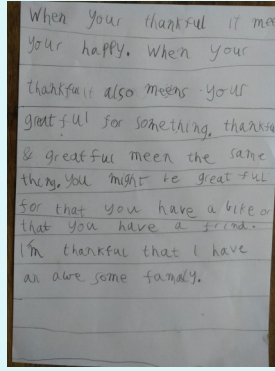 When your thankful it mee
your happy. When your
thankful it also meens your
greatful for something. thankfu
& greatful meen the same
thing. you might be greatful
for that you have a bike or
that you have a frind.
I'm thankful that I have
an awe some famaly.